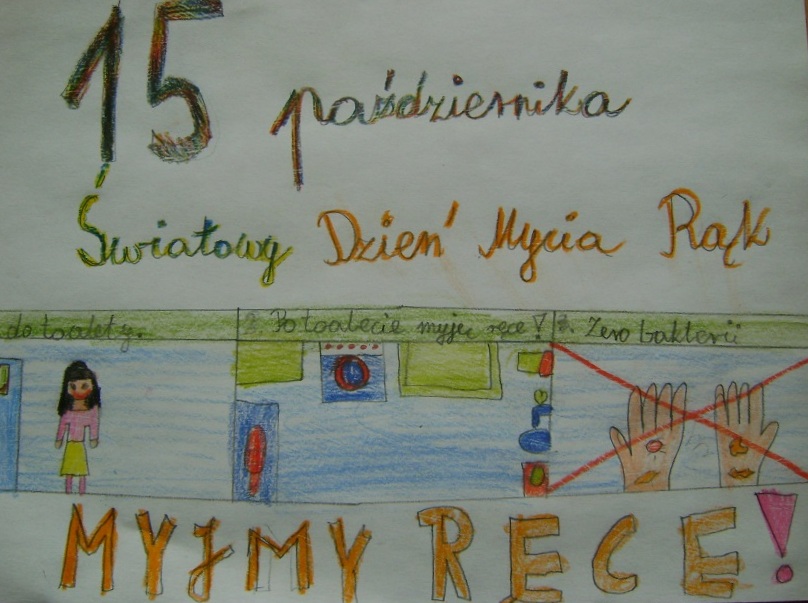 15 października
Światowy Dzień Mycia Rąk
do toalety. 2. Po toalecie myję ręce! 3. Zero bakterii
MYJMY RĘCE!